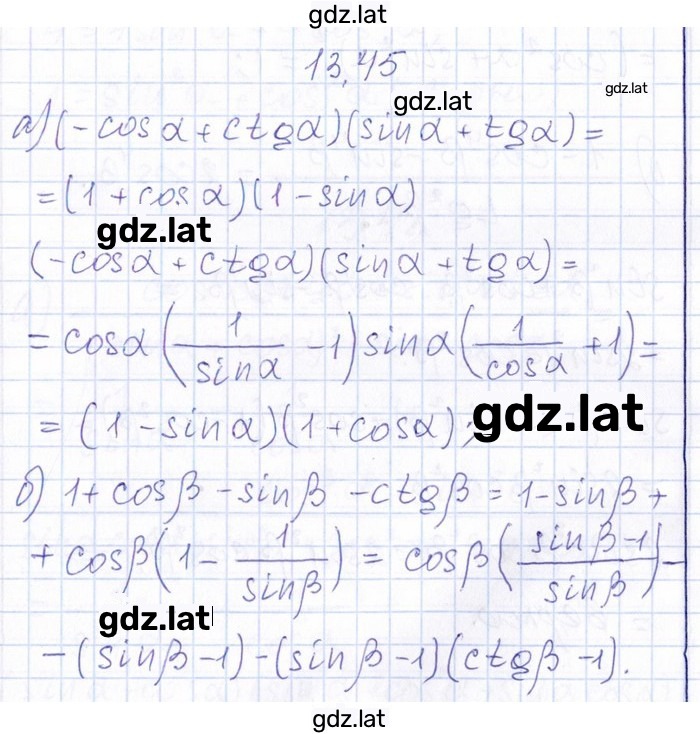 gdz.lat
13,45
gdz.lat
gdz.lat
а) (-cos α + ctg α)(sin α + tg α) =
= (1 + cos α)(1 - sin α)
gdz.lat
(-cos α + ctg α)(sin α + tg α) =
= cos α (1/sin α - 1) sin α (1/cos α + 1) =
= (1 - sin α)(1 + cos α);
gdz.lat
б) 1 + cos β - sin β - ctg β = 1 - sin β +
+ cos β (1 - 1/sin β) = cos β (sin β - 1/sin β) -
gdz.lat
- (sin β - 1) - (sin β - 1)(ctg β - 1).
gdz.lat